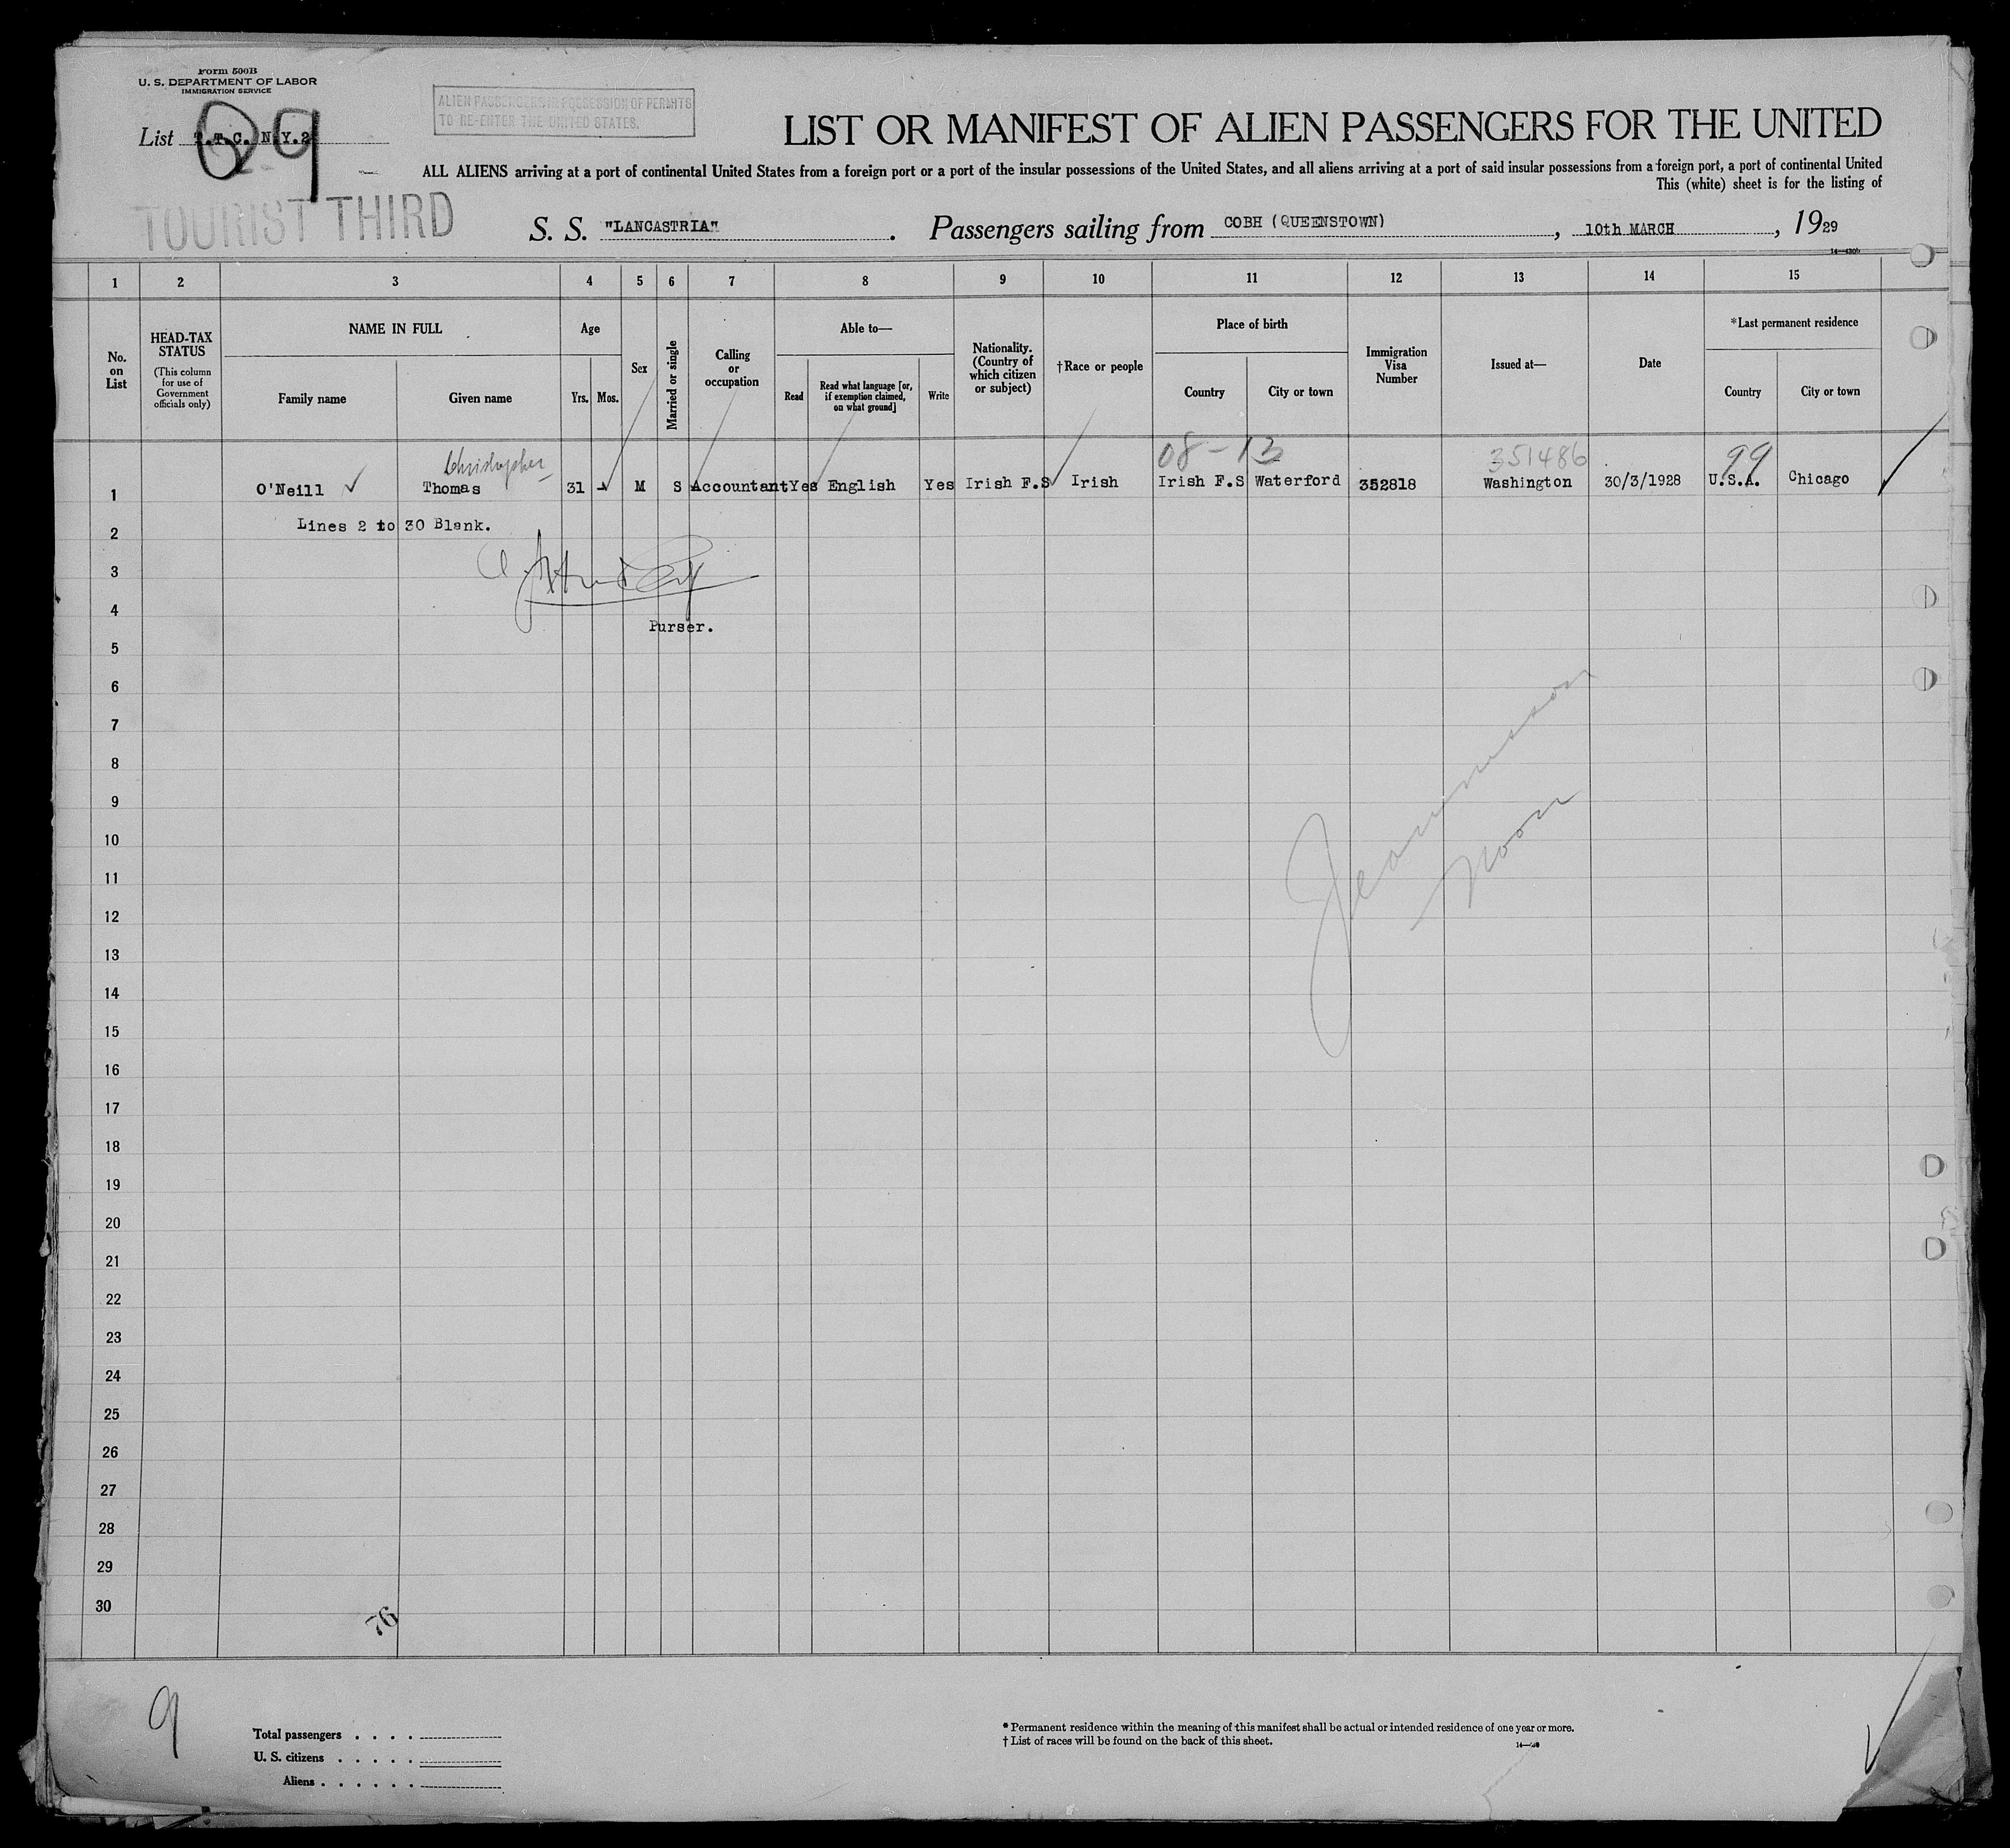 Form 500B
U. S. DEPARTMENT OF LABOR
IMMIGRATION SERVICE
List T.T.C. N.Y.2
29
ALIEN PASSENGERS IN POSSESSION OF PERMITS
TO RE-ENTER THE UNITED STATES.
TOURIST THIRD
LIST OR MANIFEST OF ALIEN PASSENGERS FOR THE UNITED
ALL ALIENS arriving at a port of continental United States from a foreign port or a port of the insular possessions of the United States, and all aliens arriving at a port of said insular possessions from a foreign port, a port of continental United
This (white) sheet is for the listing of
S. S. "LANCASTRIA". Passengers sailing from COBH (QUEENSTOWN), 10th MARCH, 1929
1 2 3 4 5 6 7 8 9 10 11 12 13 14 15
No. on List
HEAD-TAX STATUS
(This column for use of Government officials only)
NAME IN FULL
Family name
Given name
Age
Yrs.
Mos.
Sex
Married or single
Calling or occupation
Able to—
Read
Read what language [or, if exemption claimed, on what ground]
Write
Nationality. (Country of which citizen or subject)
†Race or people
Place of birth
Country
City or town
Immigration Visa Number
Issued at—
Date
*Last permanent residence
Country
City or town
Christopher 08-13 351486 99
1 O'Neill ✓ Thomas 31 - M S Accountant Yes English Yes Irish F.S Irish Irish F.S Waterford 352818 Washington 30/3/1928 U.S.A. Chicago
2 Lines 2 to 30 Blank.
3
4
Purser.
5
6
7
8
9
10
11
12
13
14
15
16
17
18
19
20
21
22
23
24
25
26
27
28
29
30
Noon
76
9
Total passengers . . . .
U. S. citizens . . . . .
Aliens . . . . . .
* Permanent residence within the meaning of this manifest shall be actual or intended residence of one year or more.
† List of races will be found on the back of this sheet.